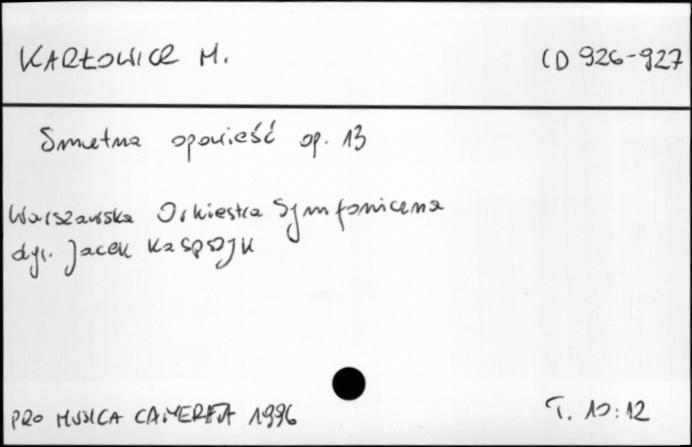 KARŁOWICZ M. CD 926-927
Smętna opowieść op. 13
Warszawska Orkiestra Symfoniczna
dyr. Jacek Kaspszyk
PRO MUSICA CAMERATA 1996 T. 10:12